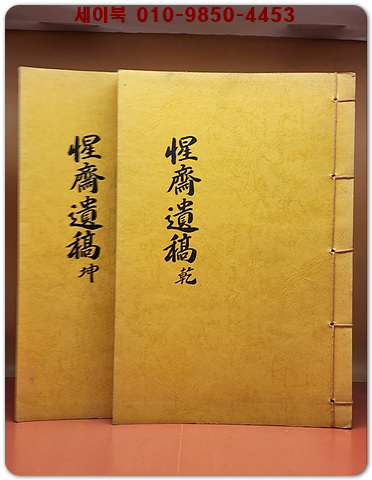 세이북 010-9850-4453
惺齋遺稿 乾
惺齋遺稿 坤